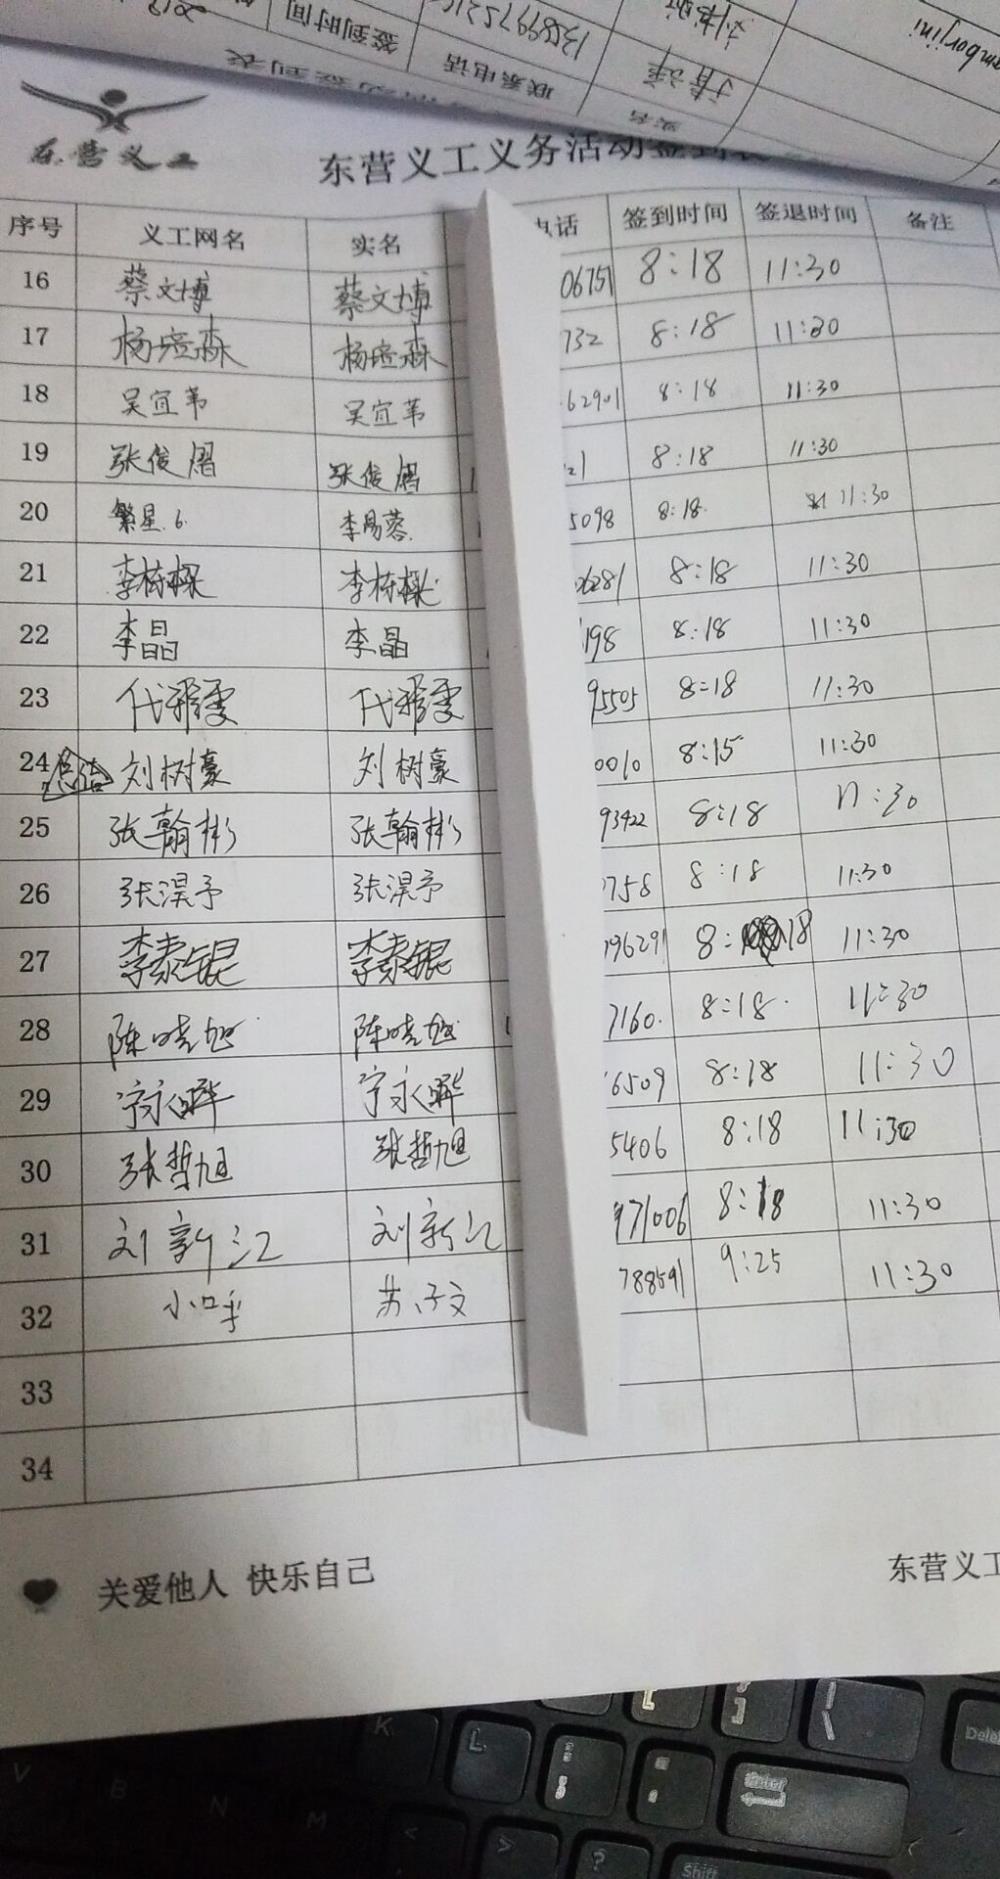 签到时间
联系电话
实名
东营义工
东营义工义务活动签到表
序号 义工网名 实名 电话 签到时间 签退时间 备注
16 蔡文博 蔡文博 06751 8:18 11:30
17 杨瑄森 杨瑄森 732 8:18 11:30
18 吴宜苇 吴宜苇 62901 8:18 11:30
19 张俊熠 张俊熠 21 8:18 11:30
20 繁星.6. 李易蓉. 5098 8:18. 11:30
21 李栋樑 李栋樑 06281 8:18 11:30
22 李晶 李晶 198 8:18 11:30
23 代雅雯 代雅雯 95505 8:18 11:30
24 总结 刘树豪 刘树豪 0010 8:15 11:30
25 张翰彬 张翰彬 93422 8:18 11:30
26 张淏予 张淏予 758 8:18 11:30
27 李泰锟 李泰锟 196291 8:18 11:30
28 陈晓旭 陈晓旭 7160. 8:18. 11:30
29 宁永晔 宁永晔 6509 8:18 11:30
30 张哲旭 张哲旭 5406 8:18 11:30
31 刘新江 刘新江 971006 8:18 11:30
32 小口乎 苏子文 788591 9:25 11:30
33
34
关爱他人 快乐自己
东营义工
K
L
V
B
N
M
Enter
Shift
Delete